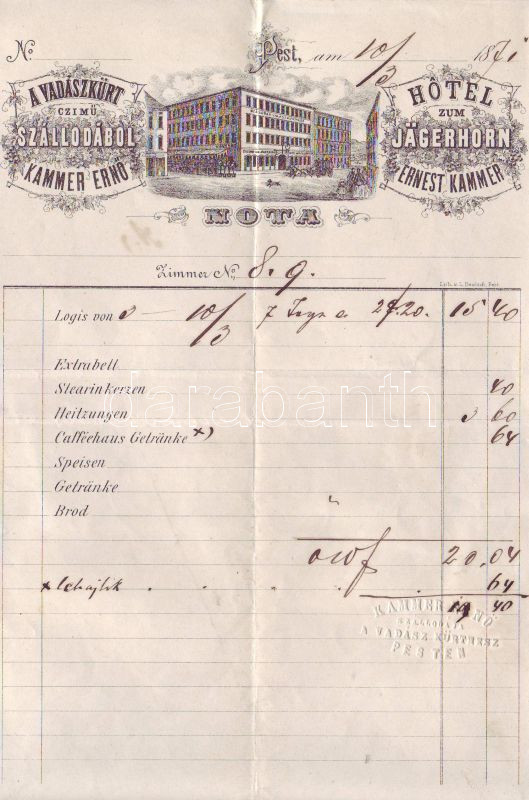 No
Pest, am 10/3 1871
A VADÁSZKÜRT
CZIMÜ
SZÁLLODÁBÓL
KAMMER ERNŐ
HÔTEL
ZUM
JÄGERHORN
ERNEST KAMMER
NOTA
Zimmer No 8. 9.
Logis von 3 — 10/3 7 Tage a 2 f. 20. 15 40
Extrabett
Stearinkerzen 40
Heitzungen 3 60
Cafféehaus Getränke x) 64
Speisen
Getränke
Brod
öwf 20.04
x 64
19 40
KAMMER ERNŐ
SZÁLLODÁJA
A VADÁSZ KÜRTHESZ
PESTEN
darabanth